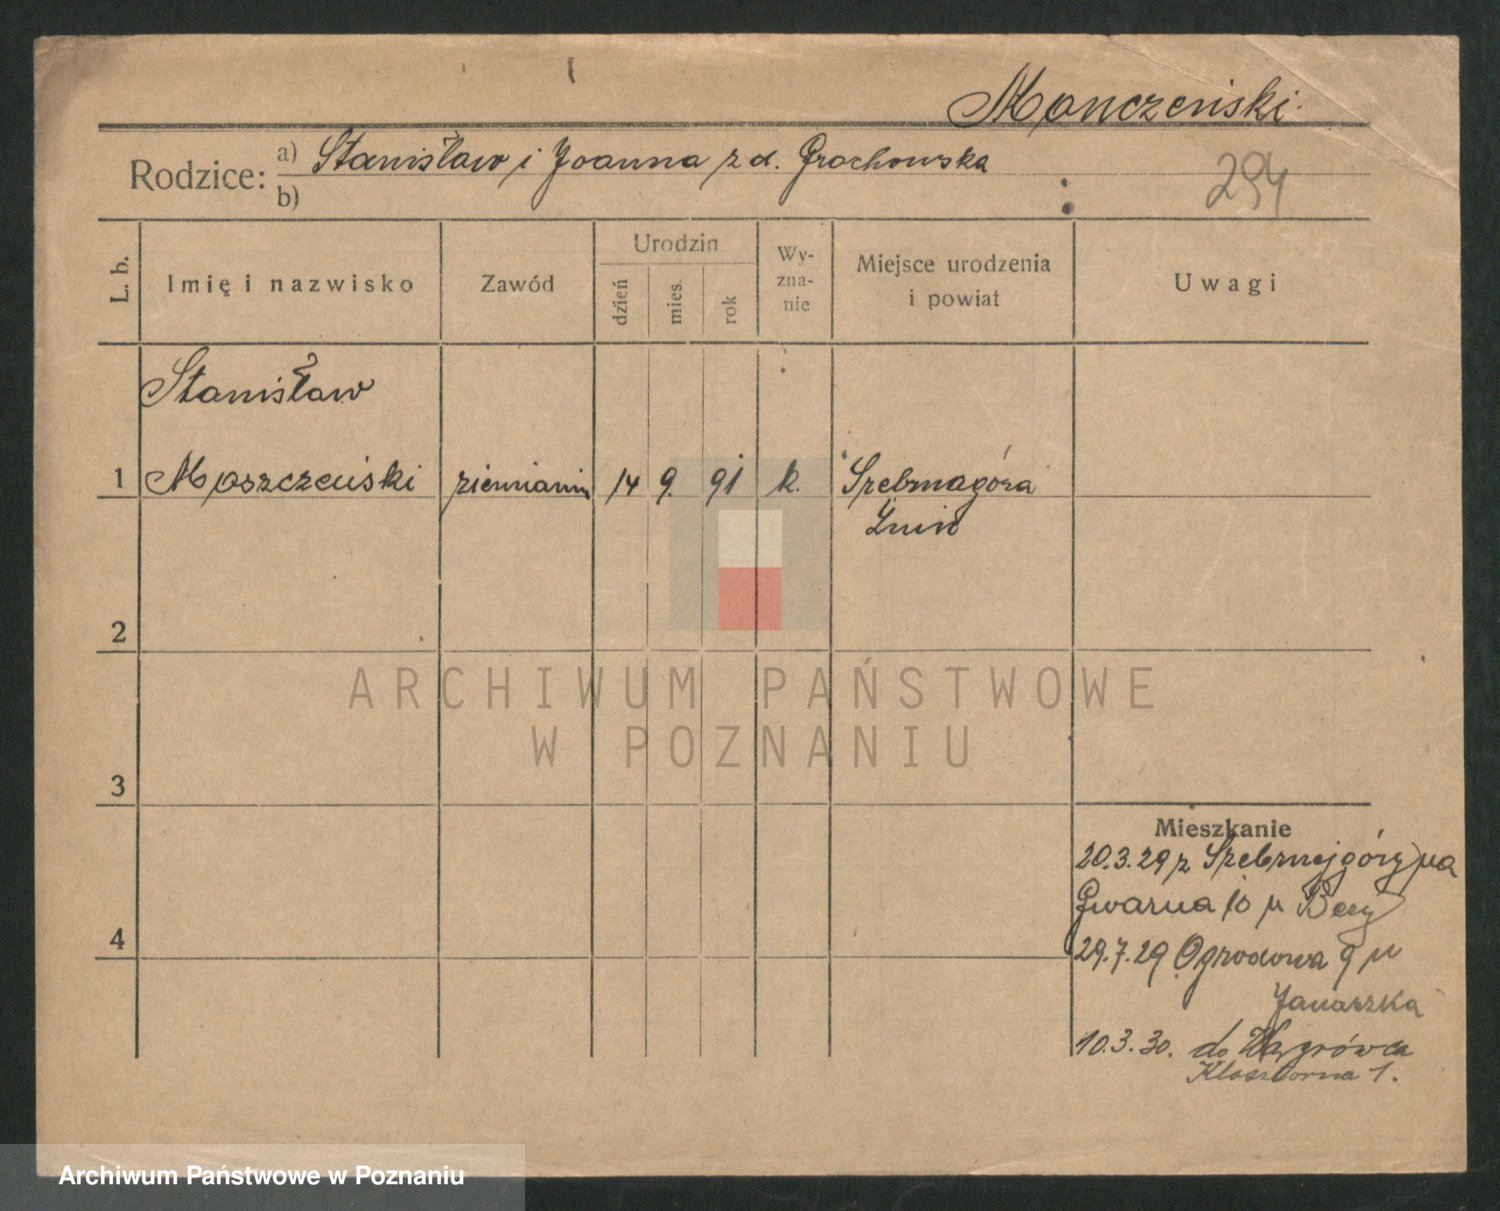 Monczeński
Rodzice: a) Stanisław i Joanna z d. Grochowska
b)
294
L. b.
Imię i nazwisko
Zawód
Urodzin
dzień
mies.
rok
Wy-
zna-
nie
Miejsce urodzenia
i powiat
Uwagi
Stanisław
1 Moszczeński ziemianin 14 9. 91 k. Srebrnagóra
Żnin
2
3
4
Mieszkanie
20.3.29 z Srebrnejgóry na
Gwarna 10 u
29.7.29 Ogrodowa 9 u
Janaszka
10.3.30. do Wągrówca
Klasztorna 1.
ARCHIWUM PAŃSTWOWE
W POZNANIU
Archiwum Państwowe w Poznaniu